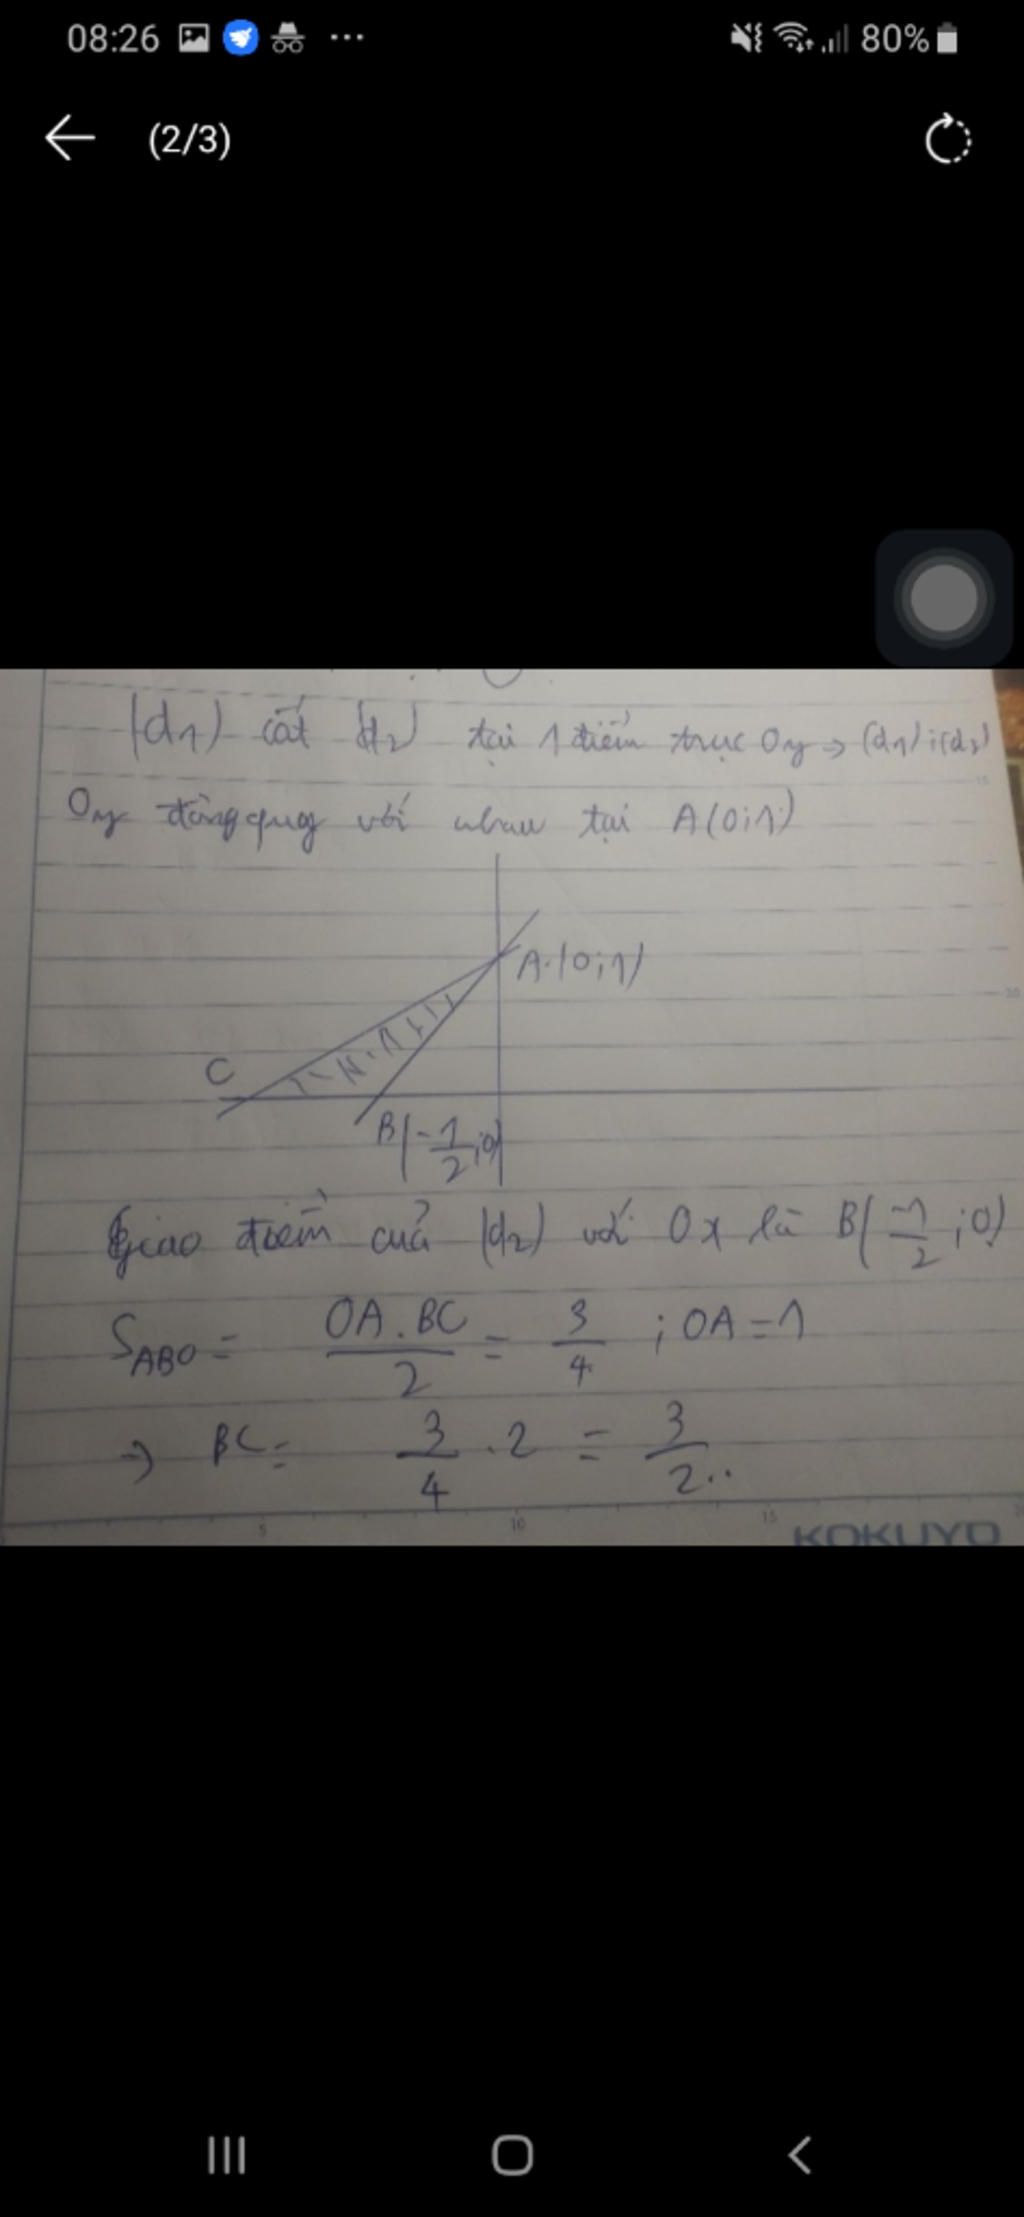 08:26 ... 80%
(2/3)
(d1) cắt (d2) tại 1 điểm trục Oy → (d1); (d2)
Oy đồng quy với nhau tại A(0;1)
A(0;1)
C
B(-1/2;0)
Giao điểm của (d2) với Ox là B(-1/2;0)
S_ABO = OA.BC/2 = 3/4 ; OA=1
→ BC= 3/4 . 2 = 3/2..
5 10 15
KOKUYO